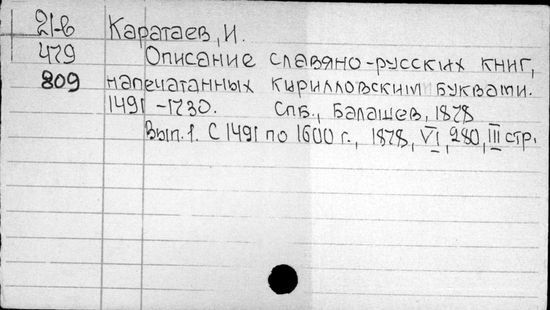 21-в Каратаев, И.
479 Описание славяно-русских книг,
809 напечатанных кирилловским буквами.
1491-1730. Спб., Балашев, 1878
Вып. 1. С 1491 по 1600 г., 1878, VI, 280, III стр.